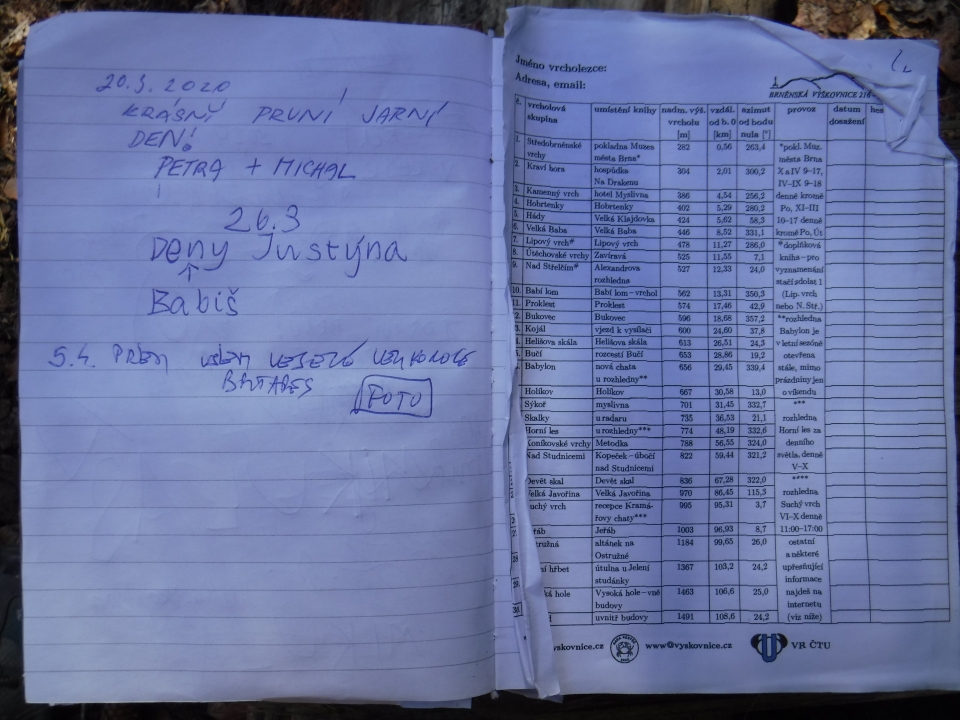 20.3.2020
KRÁSNÝ PRVNÍ JARNÍ
DEN!
PETRA + MICHAL
26.3
Deny Justýna
↑
Babiš
5.4. VŠEM VESELÉ VELIKONOCE
FOTO
Jméno vrcholezce:
Adresa, email:
BRNĚNSKÁ VÝŠKOVNICE
č. vrcholová skupina umístění knihy nadm. výš. vrcholu [m] vzdál. od b. 0 [km] azimut od bodu nula [°] provoz datum dosažení
1. Středobrněnské vrchy pokladna Muzea města Brna* 282 0,56 263,4 *pokl. Muz. města Brna
2. Kraví hora hospůdka Na Drakenu 304 2,01 300,2 X a IV 9–17, IV–IX 9–18
3. Kamenný vrch hotel Myslivna 386 4,54 256,2 denně kromě
4. Hobrtenky Hobrtenky 402 5,29 280,2 Po, XI–III
5. Hády Velká Klajdovka 424 5,62 58,3 10–17 denně
6. Velká Baba Velká Baba 446 8,52 331,1 kromě Po, Út
7. Lipový vrch# Lipový vrch 478 11,27 286,0 #doplňková
8. Útěchovské vrchy Zavíravá 525 11,55 7,1 kniha–pro
9. Nad Střelčím# Alexandrova rozhledna 527 12,33 24,0 vyznamenání stačí zdolat 1
10. Babí lom Babí lom–vrchol 562 13,31 350,3 (Lip. vrch
11. Proklest Proklest 574 17,46 42,9 nebo N. Stř.)
Bukovec Bukovec 596 18,68 357,2 **rozhledna
Kojál vjezd k vysílači 600 24,60 37,8 Babylon je
Helišova skála Helišova skála 613 26,51 24,3 v letní sezóně
Bučí rozcestí Bučí 653 28,86 19,2 otevřena
Babylon nová chata u rozhledny** 656 29,45 339,4 stále, mimo prázdniny jen
Holíkov Holíkov 667 30,58 13,0 o víkendu
Sýkoř myslivna 701 31,45 332,7 ***
Skalky u radaru 735 36,53 21,1 rozhledna
Horní les u rozhledny*** 774 48,19 332,6 Horní les za
Koníkovské vrchy Metodka 788 56,55 324,0 denního
Nad Studnicemi Kopeček–úbočí nad Studnicemi 822 59,44 321,2 světla, denně V–X
Devět skal Devět skal 836 67,28 322,0 ****
Velká Javořina Velká Javořina 970 86,45 115,3 rozhledna
Suchý vrch recepce Kramářovy chaty*** 995 95,31 3,7 Suchý vrch VI–X denně
Jeřáb Jeřáb 1003 96,93 8,7 11:00–17:00
altánek na Ostružné 1184 99,65 26,0 ostatní a některé
útulna u Jelení studánky 1367 103,2 24,2 upřesňující informace
Vysoká hole–vně budovy 1463 106,6 25,0 najdeš na internetu
uvnitř budovy 1491 108,6 24,2 (viz níže)
www@vyskovnice.cz VR ČTU